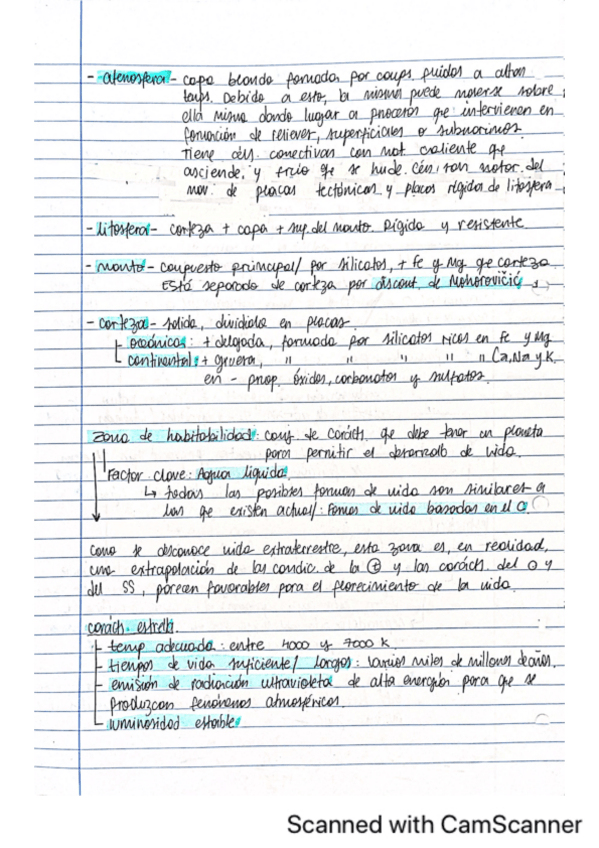 - atenosfera - capa blanda formada por comps. fluidos a altas
temps. Debido a esto, la misma puede moverse sobre
ella misma dando lugar a procesos que intervienen en
formación de relieves, superficiales o submarinos.
Tiene céls. conectivas con mat caliente qe
asciende, y frío qe se hunde. Céls. son motor del
mov. de placas tectónicas y placas rígidas de litosfera.
- litosfera - corteza + capa + sup. del manto. Rígida y resistente
- manto - compuesto principal/ por silicatos, + Fe y Mg qe corteza
Está separado de corteza por discont. de Mohorovičić
- corteza - solida, dividida en placas.
oceánica: + delgada, formada por silicatos ricos en Fe y Mg
continental: + gruesa, " " " " " Ca, Na y K
en - prop. óxidos, carbonatos y sulfatos.
Zona de habitabilidad: conj. de caráct. qe debe tener un planeta
para permitir el desarrollo de vida.
Factor clave: Agua líquida
↳ todas las posibles formas de vida son similares a
las qe existen actual/: Formas de vida basadas en el C
Como se desconoce vida extraterrestre, esta zona es, en realidad,
una extrapolación de las condic. de la ⊕ y las caráct. del ⊙ y
del SS, parecen favorables para el florecimiento de la vida.
caráct. estrella
temp adecuada: entre 4000 y 7000 K
tiempos de vida suficiente/ largos: varios miles de millones de años.
emisión de radiación ultravioleta de alta energía para que se
produzcan fenómenos atmosféricos.
luminosidad estable
Scanned with CamScanner